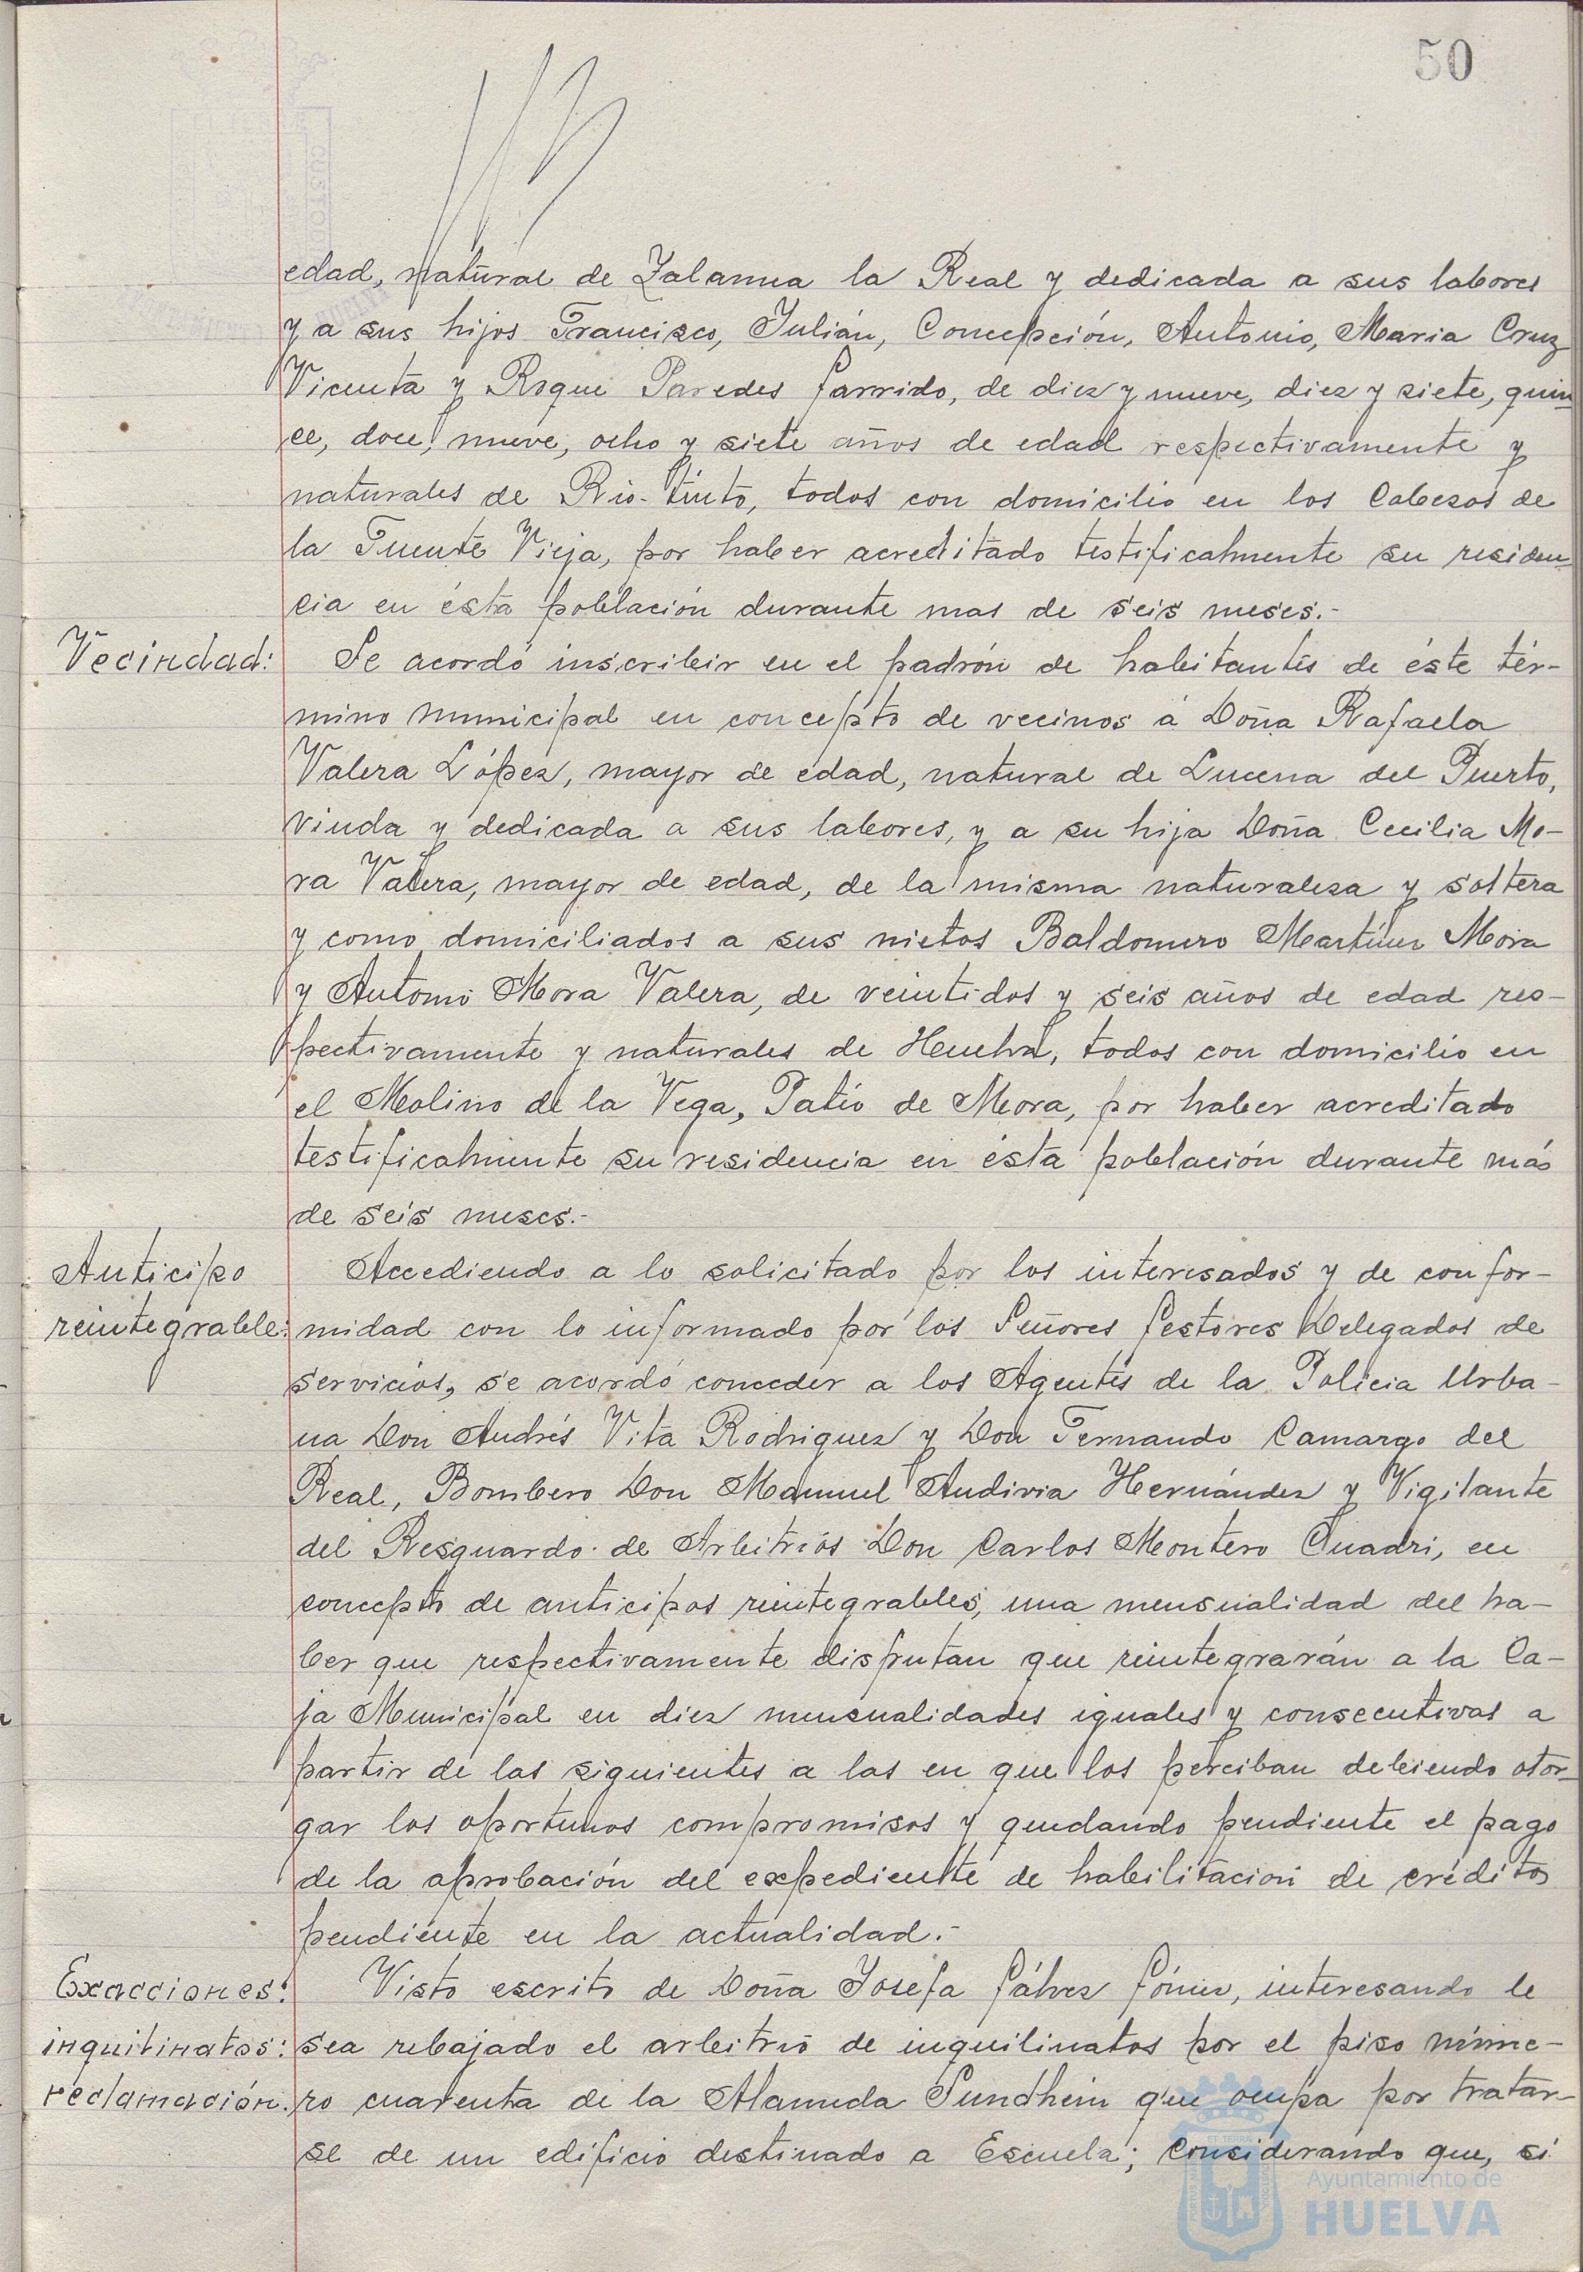 50
edad, natural de Zalamea la Real y dedicada a sus labores
y a sus hijos Francisco, Julián, Concepción, Antonio, Maria Cruz
Vicenta y Roque Paredes Garrido, de diez y nueve, diez y siete, quin-
ce, doce, nueve, ocho y siete años de edad respectivamente y
naturales de Rio-tinto, todos con domicilio en los Cabezos de
la Fuente Vieja, por haber acreditado testificalmente su residen
cia en ésta población durante mas de seis meses.-
Vecindad: Se acordó inscribir en el padrón de habitantes de éste tér-
mino municipal en concepto de vecinos á Doña Rafaela
Valera López, mayor de edad, natural de Lucena del Puerto,
viuda y dedicada a sus labores, y a su hija Doña Cecilia Mo-
ra Valera, mayor de edad, de la misma naturaleza y soltera
y como domiciliados a sus nietos Baldomero Martínez Mora
y Antonio Mora Valera, de veintidos y seis años de edad res-
pectivamente y naturales de Huelva, todos con domicilio en
el Molino de la Vega, Patio de Mora, por haber acreditado
testificalmente su residencia en ésta población durante más
de seis meses.-
Anticipo Accediendo a lo solicitado por los interesados y de confor-
reintegrable: midad con lo informado por los Señores Gestores Delegados de
servicios, se acordó conceder a los Agentes de la Policia Urba-
na Don Andrés Vita Rodriguez y Don Fernando Camargo del
Real, Bombero Don Manuel Andivia Hernández y Vigilante
del Resguardo de Arbitrios Don Carlos Montero Cuadri, en
concepto de anticipos reintegrables, una mensualidad del ha-
ber que respectivamente disfrutan que reintegrarán a la Ca-
ja Municipal en diez mensualidades iguales y consecutivas a
partir de las siguientes a las en que los perciban debiendo otor-
gar los oportunos compromisos y quedando pendiente el pago
de la aprobación del expediente de habilitación de créditos
pendiente en la actualidad.-
Exacciones: Visto escrito de Doña Josefa Gálvez Gómez, interesando le
inquilinatos: sea rebajado el arbitrio de inquilinatos por el piso núme-
reclamación. ro cuarenta de la Alameda Sundheim que ocupa por tratar-
se de un edificio destinado a Escuela; considerando que, si
Ayuntamiento de
HUELVA